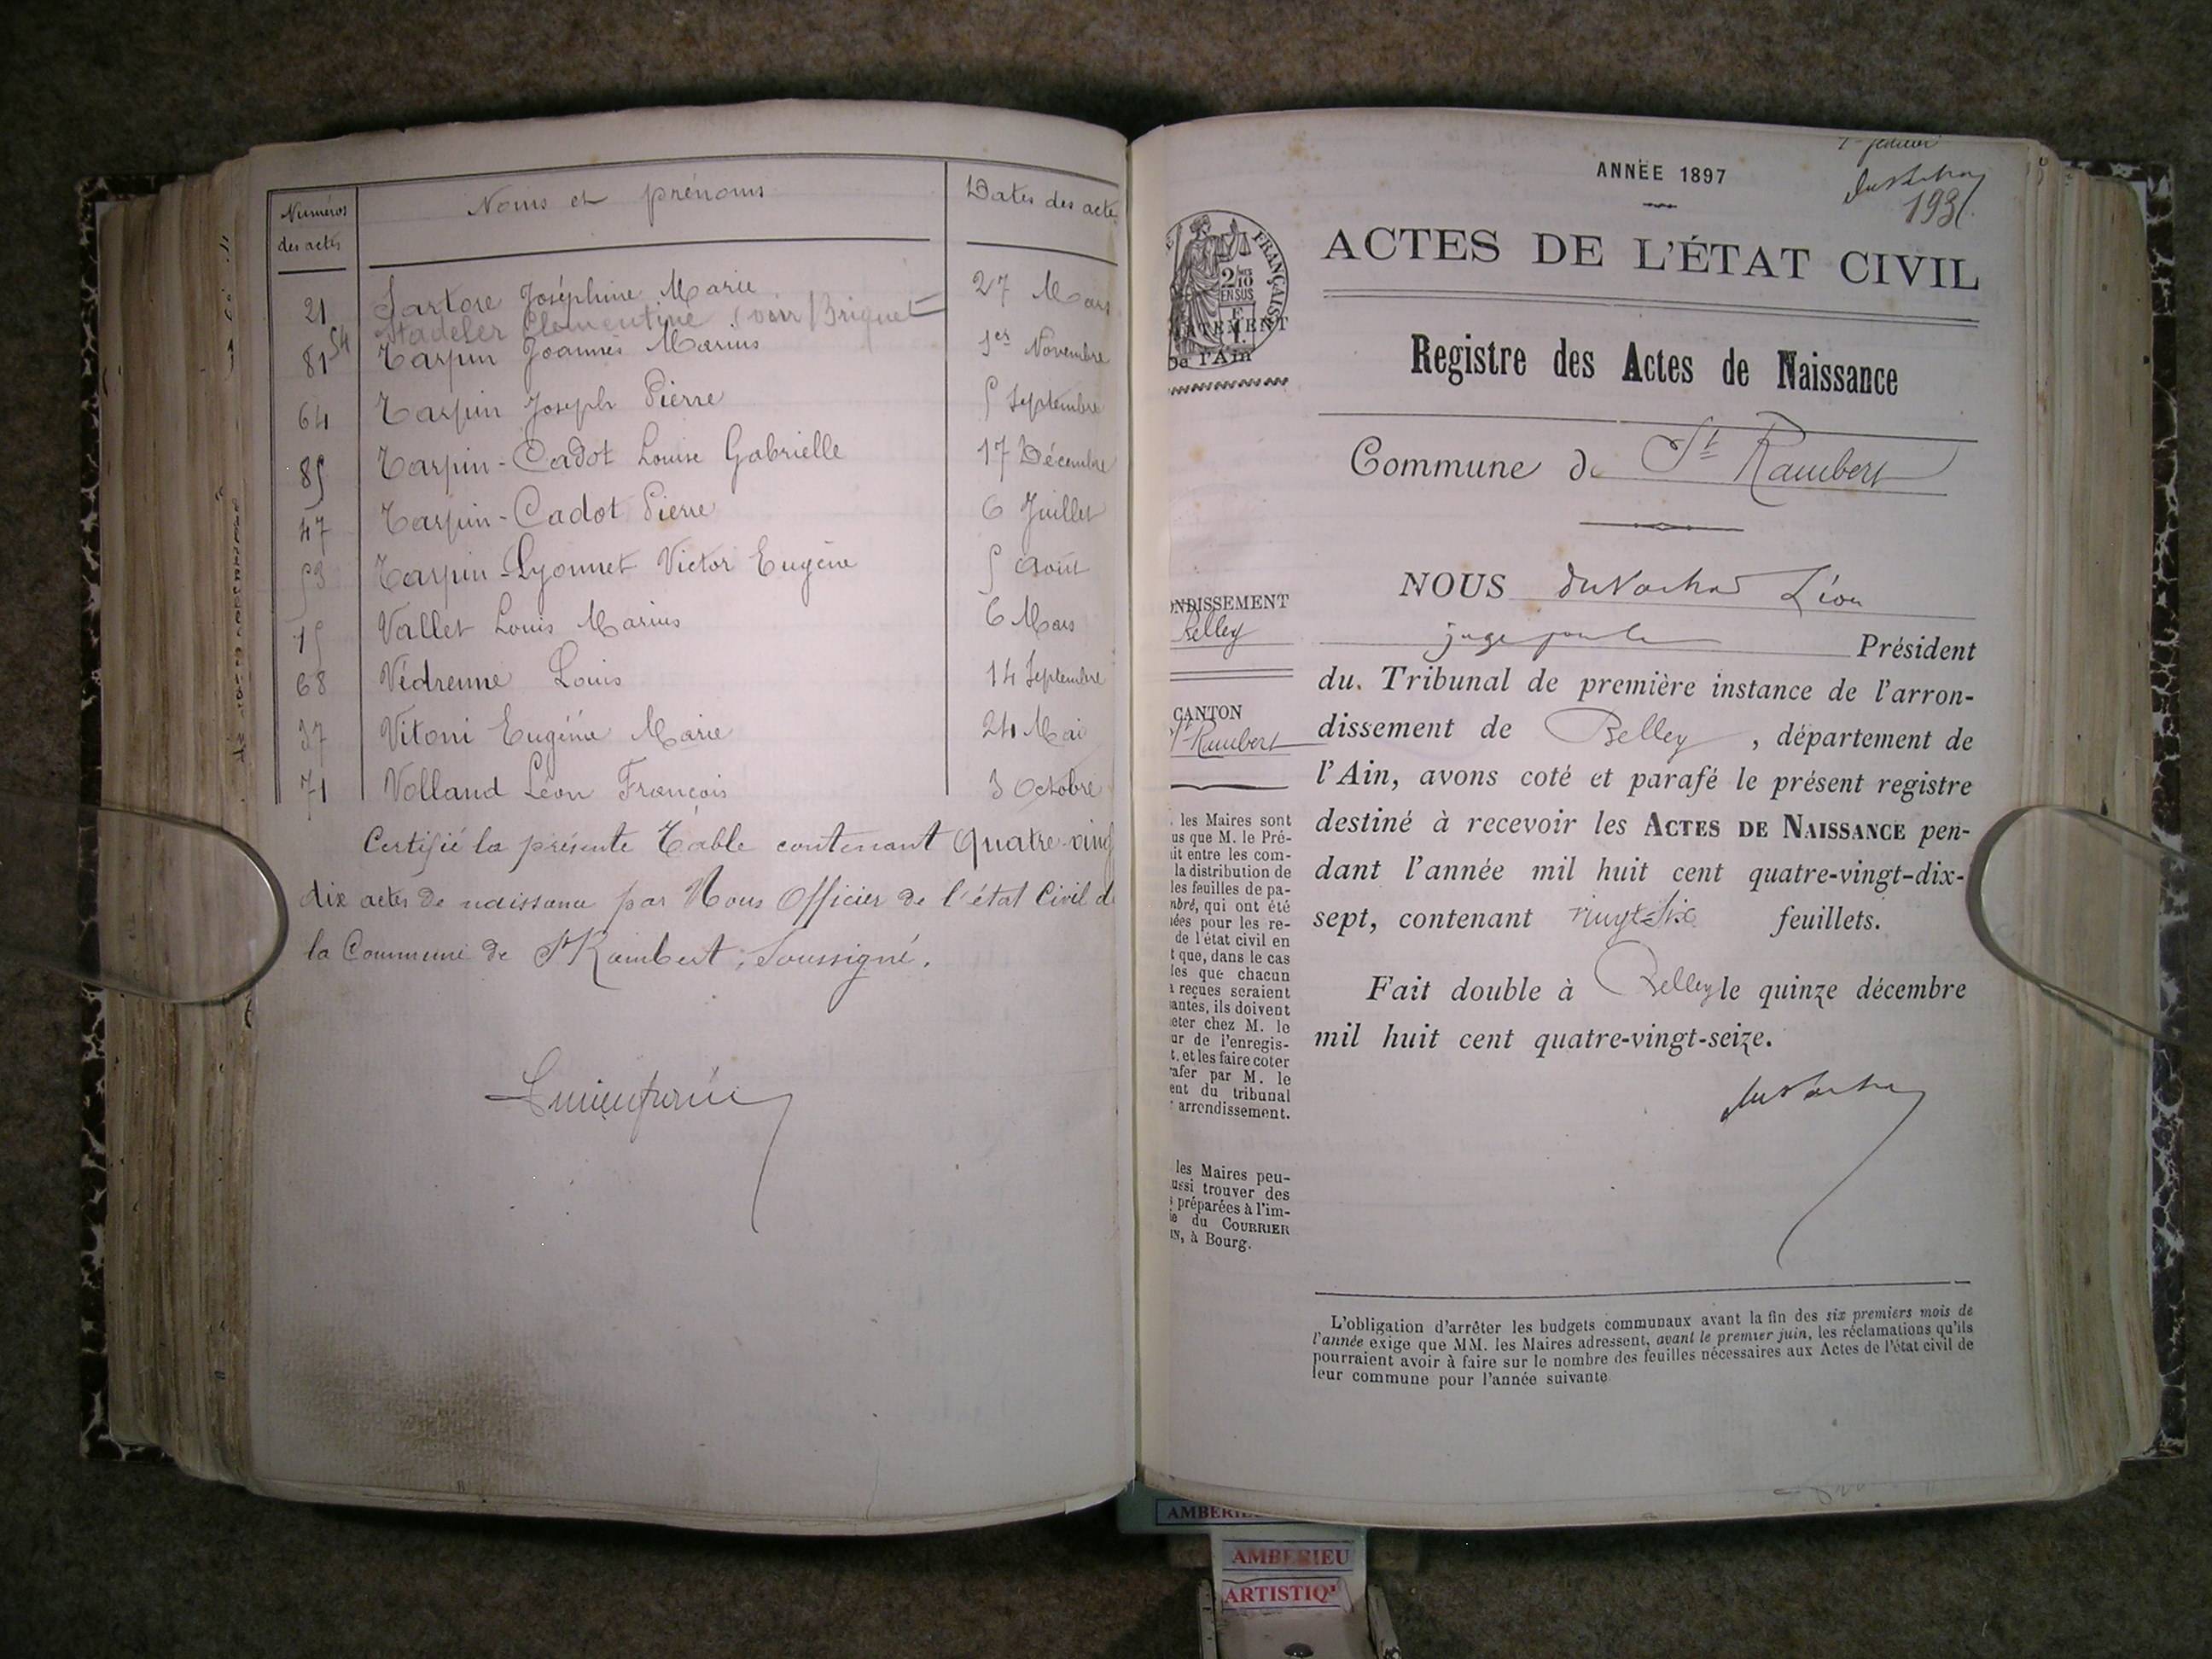 Numéros des actes Noms et prénoms Dates des actes
21 Sartore Joséphine Marie 27 Mars
54 Stadeler Clementine (voir Briquet
81 Tarpin Joannès Marius 1er Novembre
64 Tarpin Joseph Pierre 5 Septembre
85 Tarpin-Cadot Louise Gabrielle 17 Décembre
47 Tarpin-Cadot Pierre 6 Juillet
53 Tarpin-Lyonnet Victor Eugène 5 Août
15 Vallet Louis Marius 6 Mars
68 Védrenne Louis 14 Septembre
37 Vitoni Eugénie Marie 24 Mai
71 Volland Léon François 3 Octobre
Certifié la présente Table contenant Quatre-ving
dix actes de naissance par Nous Officier de l'état Civil d
la Commune de St Rambert, Soussigné.
ANNÉE 1897
ACTES DE L'ÉTAT CIVIL
Registre des Actes de Naissance
Commune de St Rambert
NOUS Léon
juge pour le Président
du Tribunal de première instance de l'arron-
dissement de Belley, département de
l'Ain, avons coté et parafé le présent registre
destiné à recevoir les ACTES DE NAISSANCE pen-
dant l'année mil huit cent quatre-vingt-dix-
sept, contenant vingt-six feuillets.
Fait double à Belley le quinze décembre
mil huit cent quatre-vingt-seize.
L'obligation d'arrêter les budgets communaux avant la fin des six premiers mois de
l'année exige que MM. les Maires adressent, avant le premier juin, les réclamations qu'ils
pourraient avoir à faire sur le nombre des feuilles nécessaires aux Actes de l'état civil de
leur commune pour l'année suivante
FRANÇAIS
2/10
EN SUS
De l'Ain
NDISSEMENT
Belley
CANTON
St Rambert
les Maires sont
us que M. le Pré-
it entre les com-
la distribution de
les feuilles de pa-
mbré, qui ont été
ées pour les re-
de l'état civil en
t que, dans le cas
les que chacun
a reçues seraient
antes, ils doivent
eter chez M. le
ur de l'enregis-
t, et les faire coter
rafer par M. le
ent du tribunal
arrondissement.
les Maires peu-
ussi trouver des
préparées à l'im-
ie du COURRIER
IN, à Bourg.
AMBERIEU
ARTISTIQ